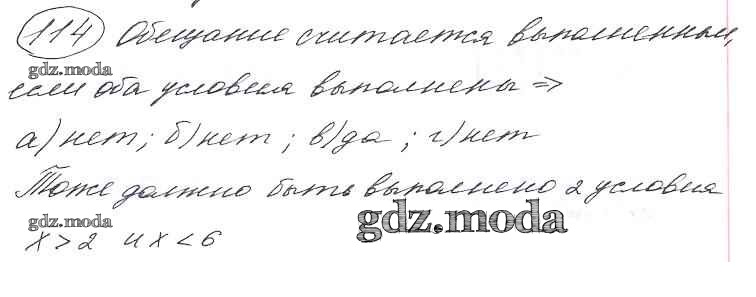 114 Обещание считается выполненным,
gdz.moda
если оба условия выполнены =>
а) нет; б) нет; в) да; г) нет
Тоже должно быть выполнено 2 условия
gdz.moda
gdz.moda
x > 2 и x < 6